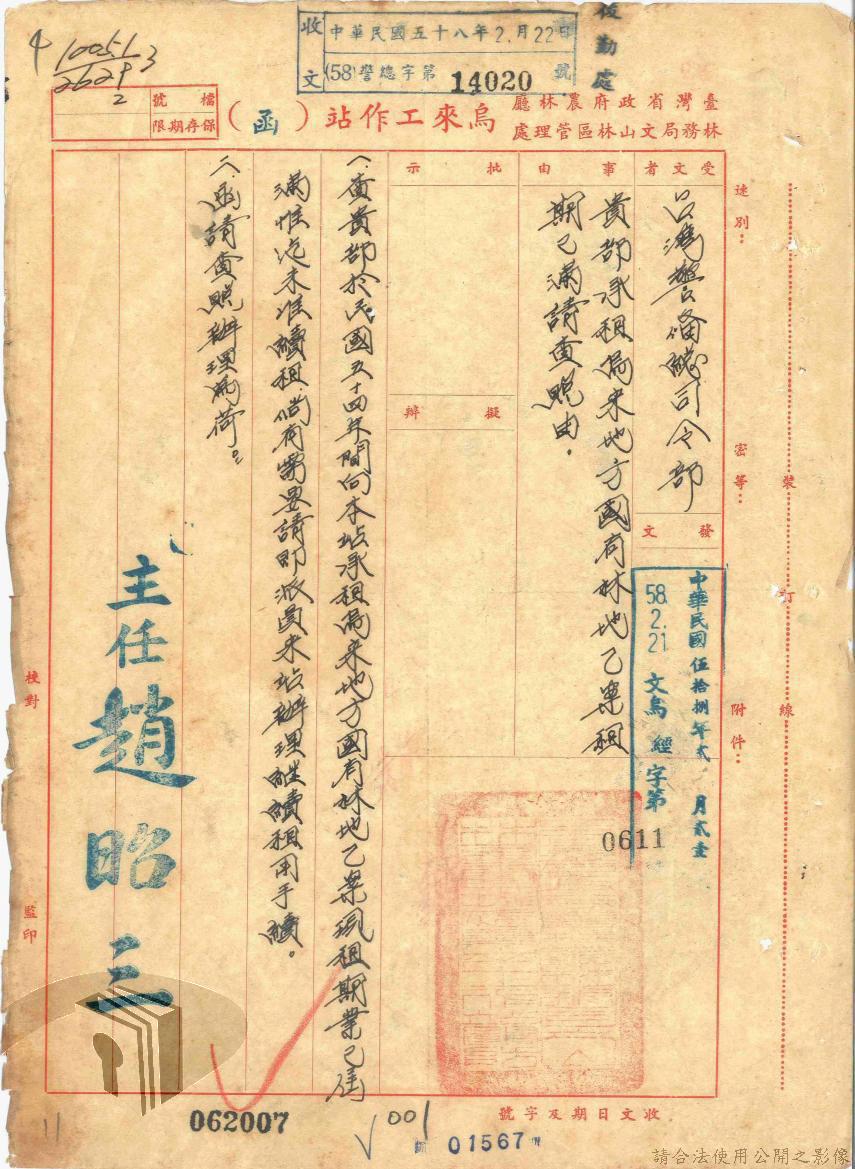 後勤處
收文
中華民國五十八年2月22日
(58)警總字第14020號
10051
2629 3
2
檔號
保存期限
臺灣省政府農林廳
林務局文山林區管理處
烏來工作站(函)
速別：
密等：
附件：
裝
訂
線
受文者
台灣警備總司令部
發文
中華民國伍拾捌年貳月貳壹
58.2.21 文烏經字第
0611
事由
貴部承租烏來地方國有林地乙案租
期已滿請查照由。
批示
擬辦
一、查貴部於民國五十四年間向本站承租烏來地方國有林地乙案現租期業已屆
滿惟迄未准續租，倘有需要請即派員來站辦理繼續租用手續。
二、函請查照辦理為荷。
主任 趙昭三
校對
監印
收文日期及字號
062007
001
01567
11
請合法使用公開之影像